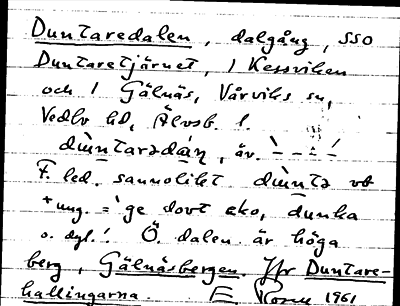 Duntaredalen, dalgång, SSO
Duntaretjärnet, / Kessviken
och / Gälnäs, Vårviks sn,
Vedbo hd, Älvsb. l.
dùntarədán, äv. `---´
F. led. sannolikt dùnta vb
+ ung. = 'ge dovt eko, dunka
o. dyl.'. Ö. dalen är höga
berg, Gälnäsbergen. Jfr Duntare-
hallingarna. E. 1961